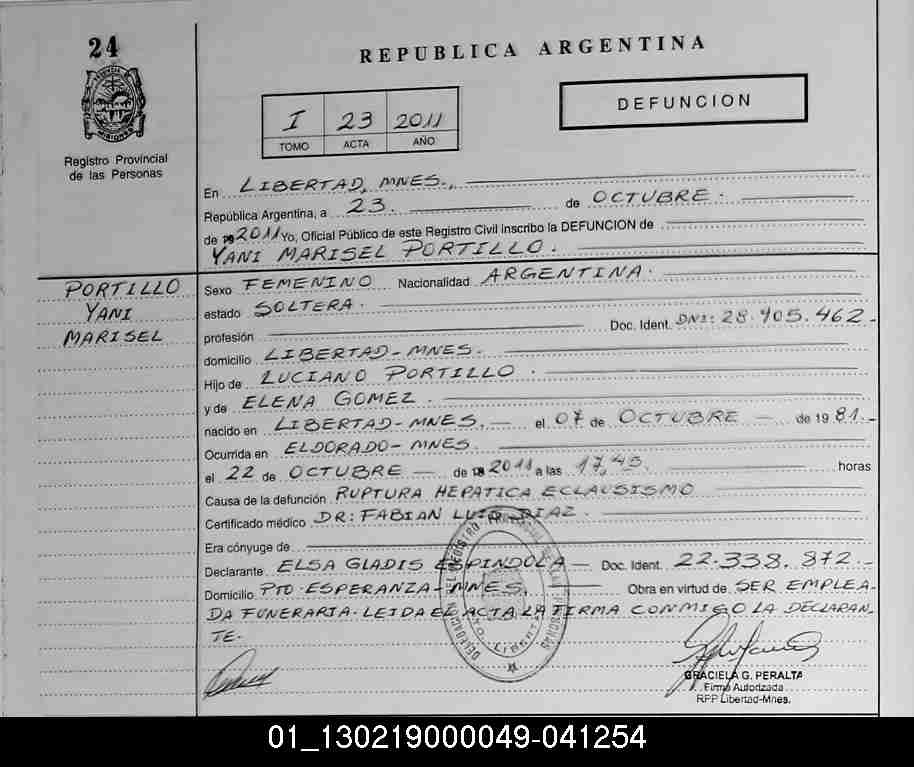 24
REPUBLICA ARGENTINA
DEFUNCION
I 23 2011
TOMO ACTA AÑO
PROVINCIA DE MISIONES
Registro Provincial
de las Personas
En LIBERTAD, MNES.,
República Argentina, a 23. de OCTUBRE.
de 2011 Yo, Oficial Público de este Registro Civil inscribo la DEFUNCION de
YANI MARISEL PORTILLO.
PORTILLO
YANI
MARISEL
Sexo FEMENINO Nacionalidad ARGENTINA.
estado SOLTERA.
profesión Doc. Ident. DNI: 28.905.462-
domicilio LIBERTAD-MNES.
Hijo de LUCIANO PORTILLO.
y de ELENA GOMEZ.
nacido en LIBERTAD-MNES. el 07 de OCTUBRE de 1981.-
Ocurrida en ELDORADO-MNES.
el 22 de OCTUBRE de 2011 a las 17,45. horas
Causa de la defunción RUPTURA HEPATICA ECLAUSISMO
Certificado médico DR: FABIAN LUIS DIAZ.
Era cónyuge de
Declarante ELSA GLADIS ESPINDOLA Doc. Ident. 22.338.872-
Domicilio PTO-ESPERANZA-MNES. Obra en virtud de SER EMPLEA-
DA FUNERARIA. LEIDA EL ACTA LA FIRMA CONMIGO LA DECLARAN-
TE.
GRACIELA G. PERALTA
Firma Autorizada
RPP Libertad-Mnes.
01_130219000049-041254